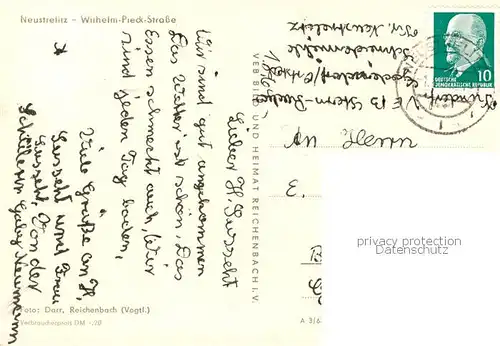 Neustrelitz - Wilhelm-Pieck-Straße
Lieber H. Gusseht
Wir sind gut angekommen
Das Wetter ist schön. Das
Essen schmeckt auch, Wir
sind jeden Tag baden,
Viele Grüße an H.
Gusseht und Frau
Gusseht. Von der
Schülerin Gaby Neumann
Foto: Darr, Reichenbach (Vogtl.)
Verbraucherpreis DM -,20
VEB BILD UND HEIMAT REICHENBACH I. V.
A 3/6
An Herrn
E.
VEB
Kr. Neustrelitz
DEUTSCHE
DEMOKRATISCHE REPUBLIK
10
privacy protection
Datenschutz